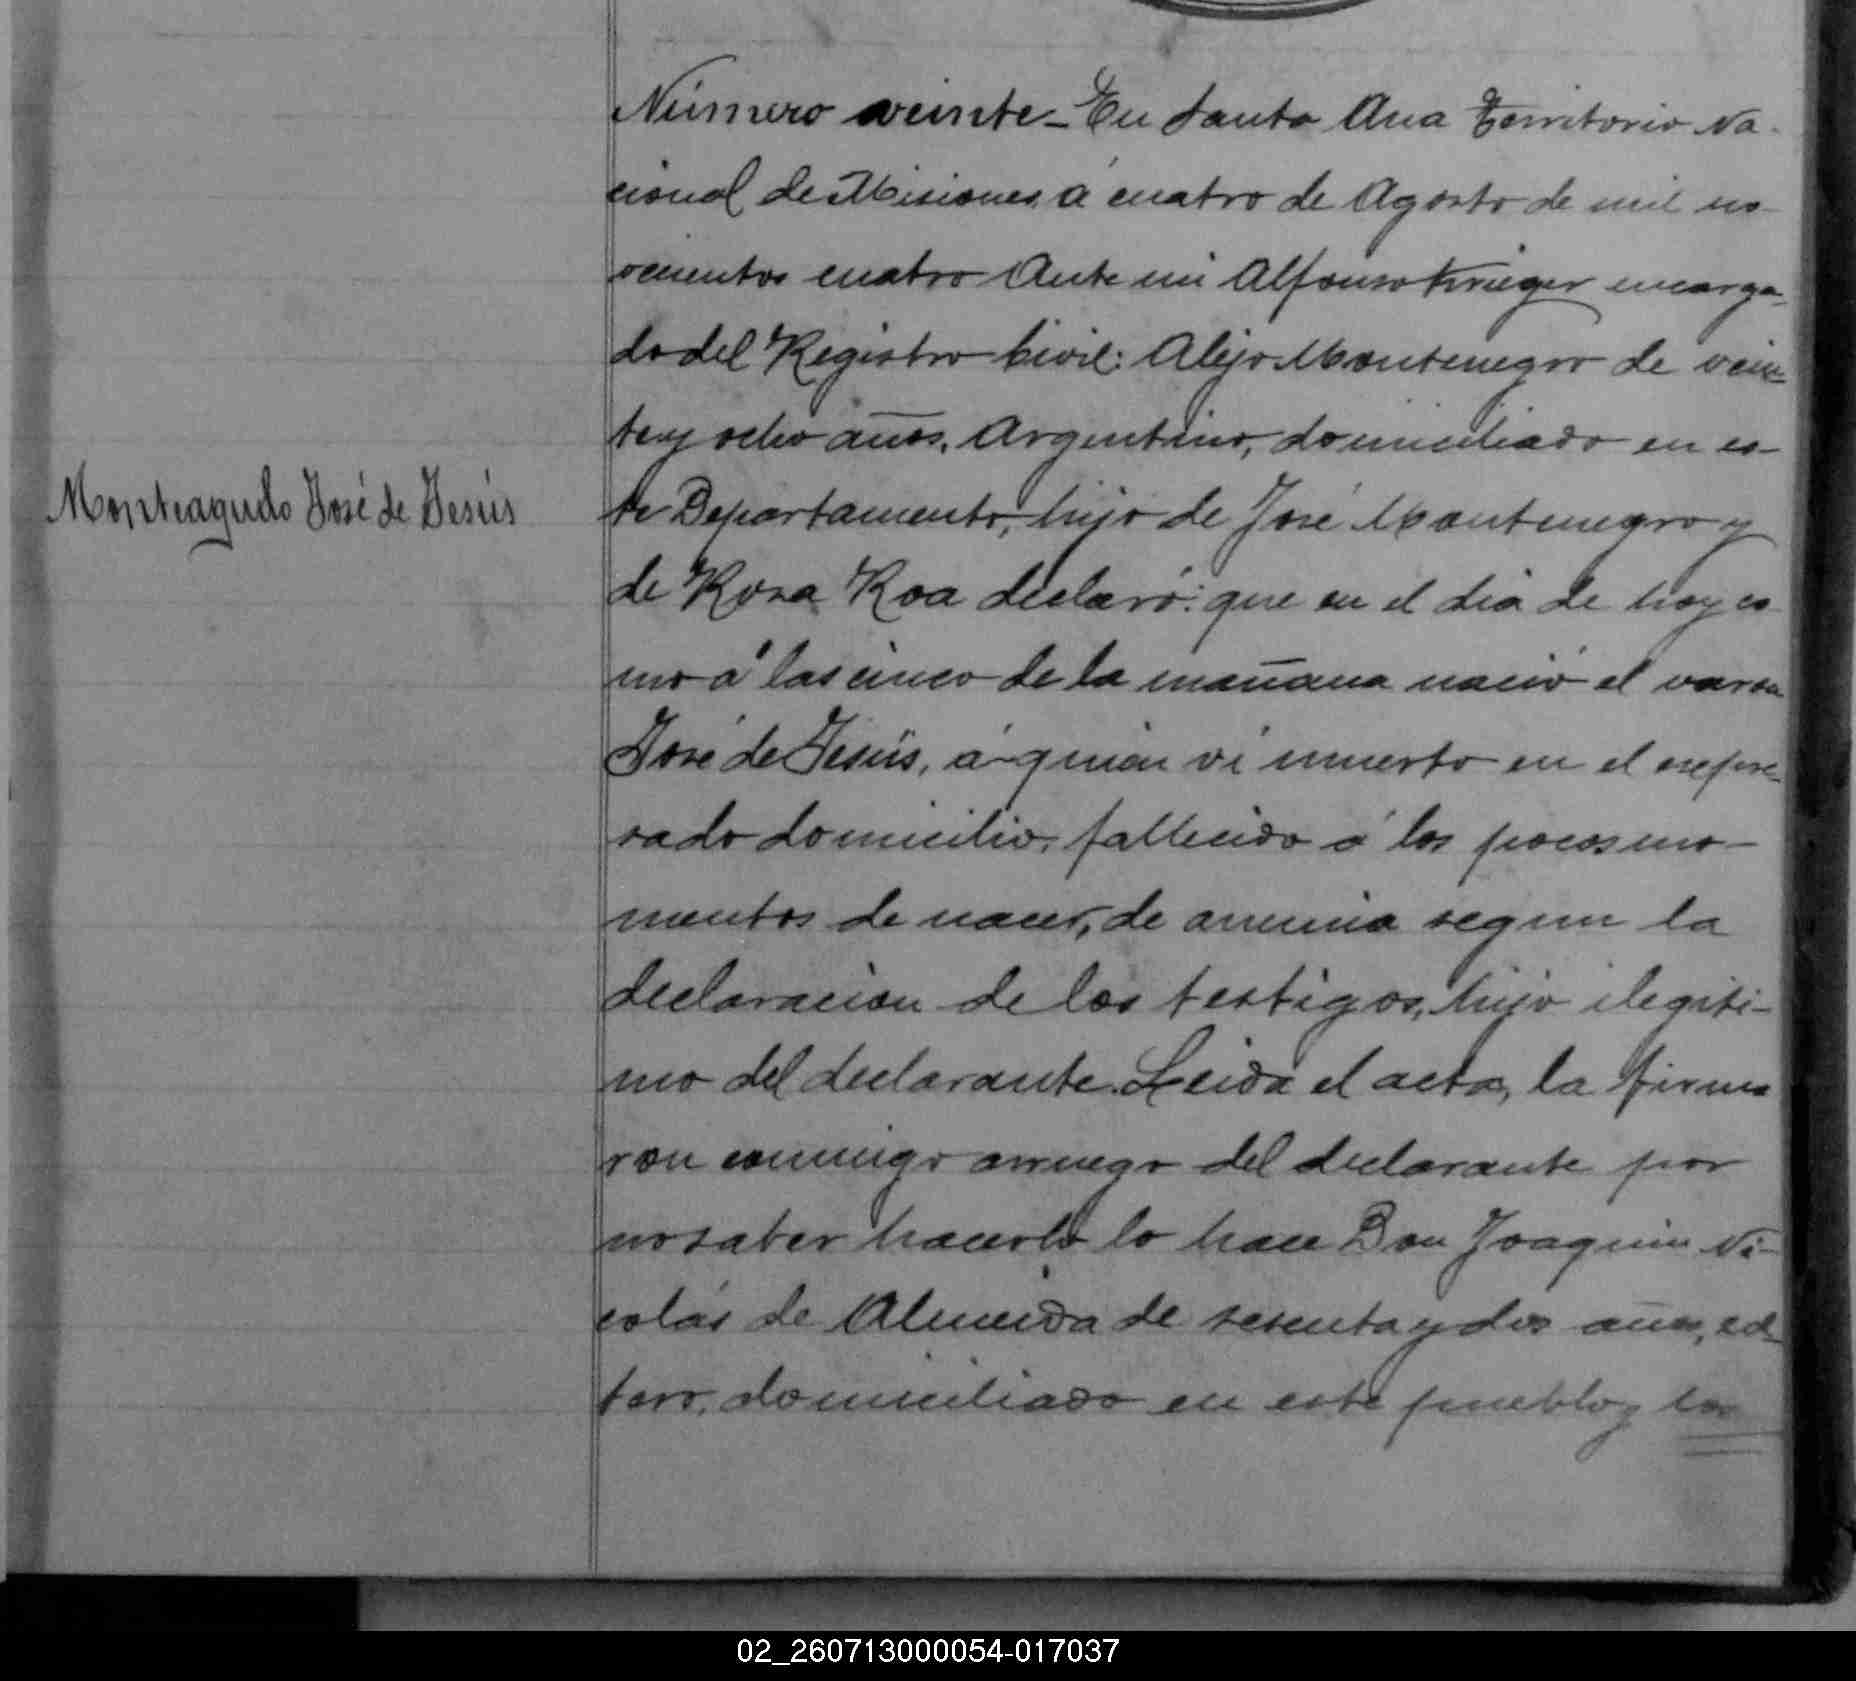 Número veinte - En Santa Ana Territorio Na-
cional de Misiones á cuatro de Agosto de mil no-
vecientos cuatro Ante mi Alfonso Krieger encarga-
do del Registro Civil: Alejo Montenegro de vein-
te y ocho años, Argentino, domiciliado en es-
Monteagudo José de Jesús
te Departamento, hijo de José Montenegro y
de Rosa Roa declaró: que en el dia de hoy co-
mo á las cinco de la mañana nació el varon
José de Jesús, á quien ví muerto en el expre-
sado domicilio, fallecido á los pocos mo-
mentos de nacer, de anemia segun la
declaracion de los testigos, hijo ilegiti-
mo del declarante. Leida el acta, la firma
ron conmigo arruego del declarante por
no saber hacerlo lo hace Don Joaquin Ni-
colás de Almeida de sesenta y dos años, sol-
tero, domiciliado en este pueblo y los
02_260713000054-017037